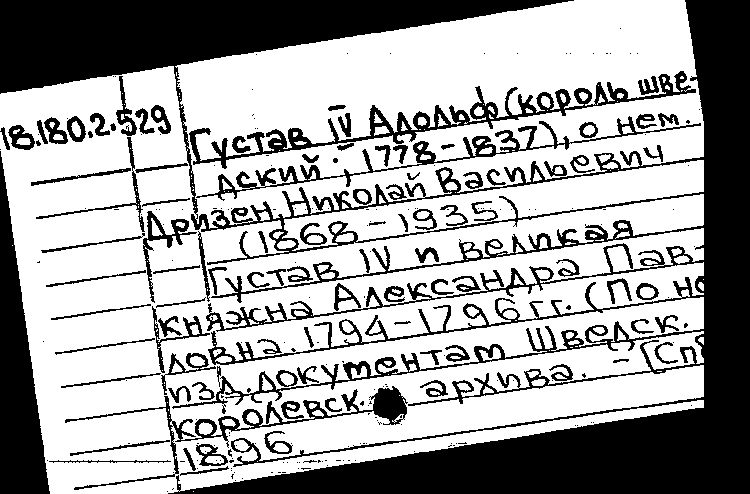 18.180.2.529
Густав IV Адольф (король шве-
дский; 1778-1837), о нем.
Дризен, Николай Васильевич
(1868-1935)
Густав IV и великая
княжна Александра Пав-
ловна. 1794-1796 гг. (По
изд. документам Шведск.
королевск. архива. - [Спб
1896.